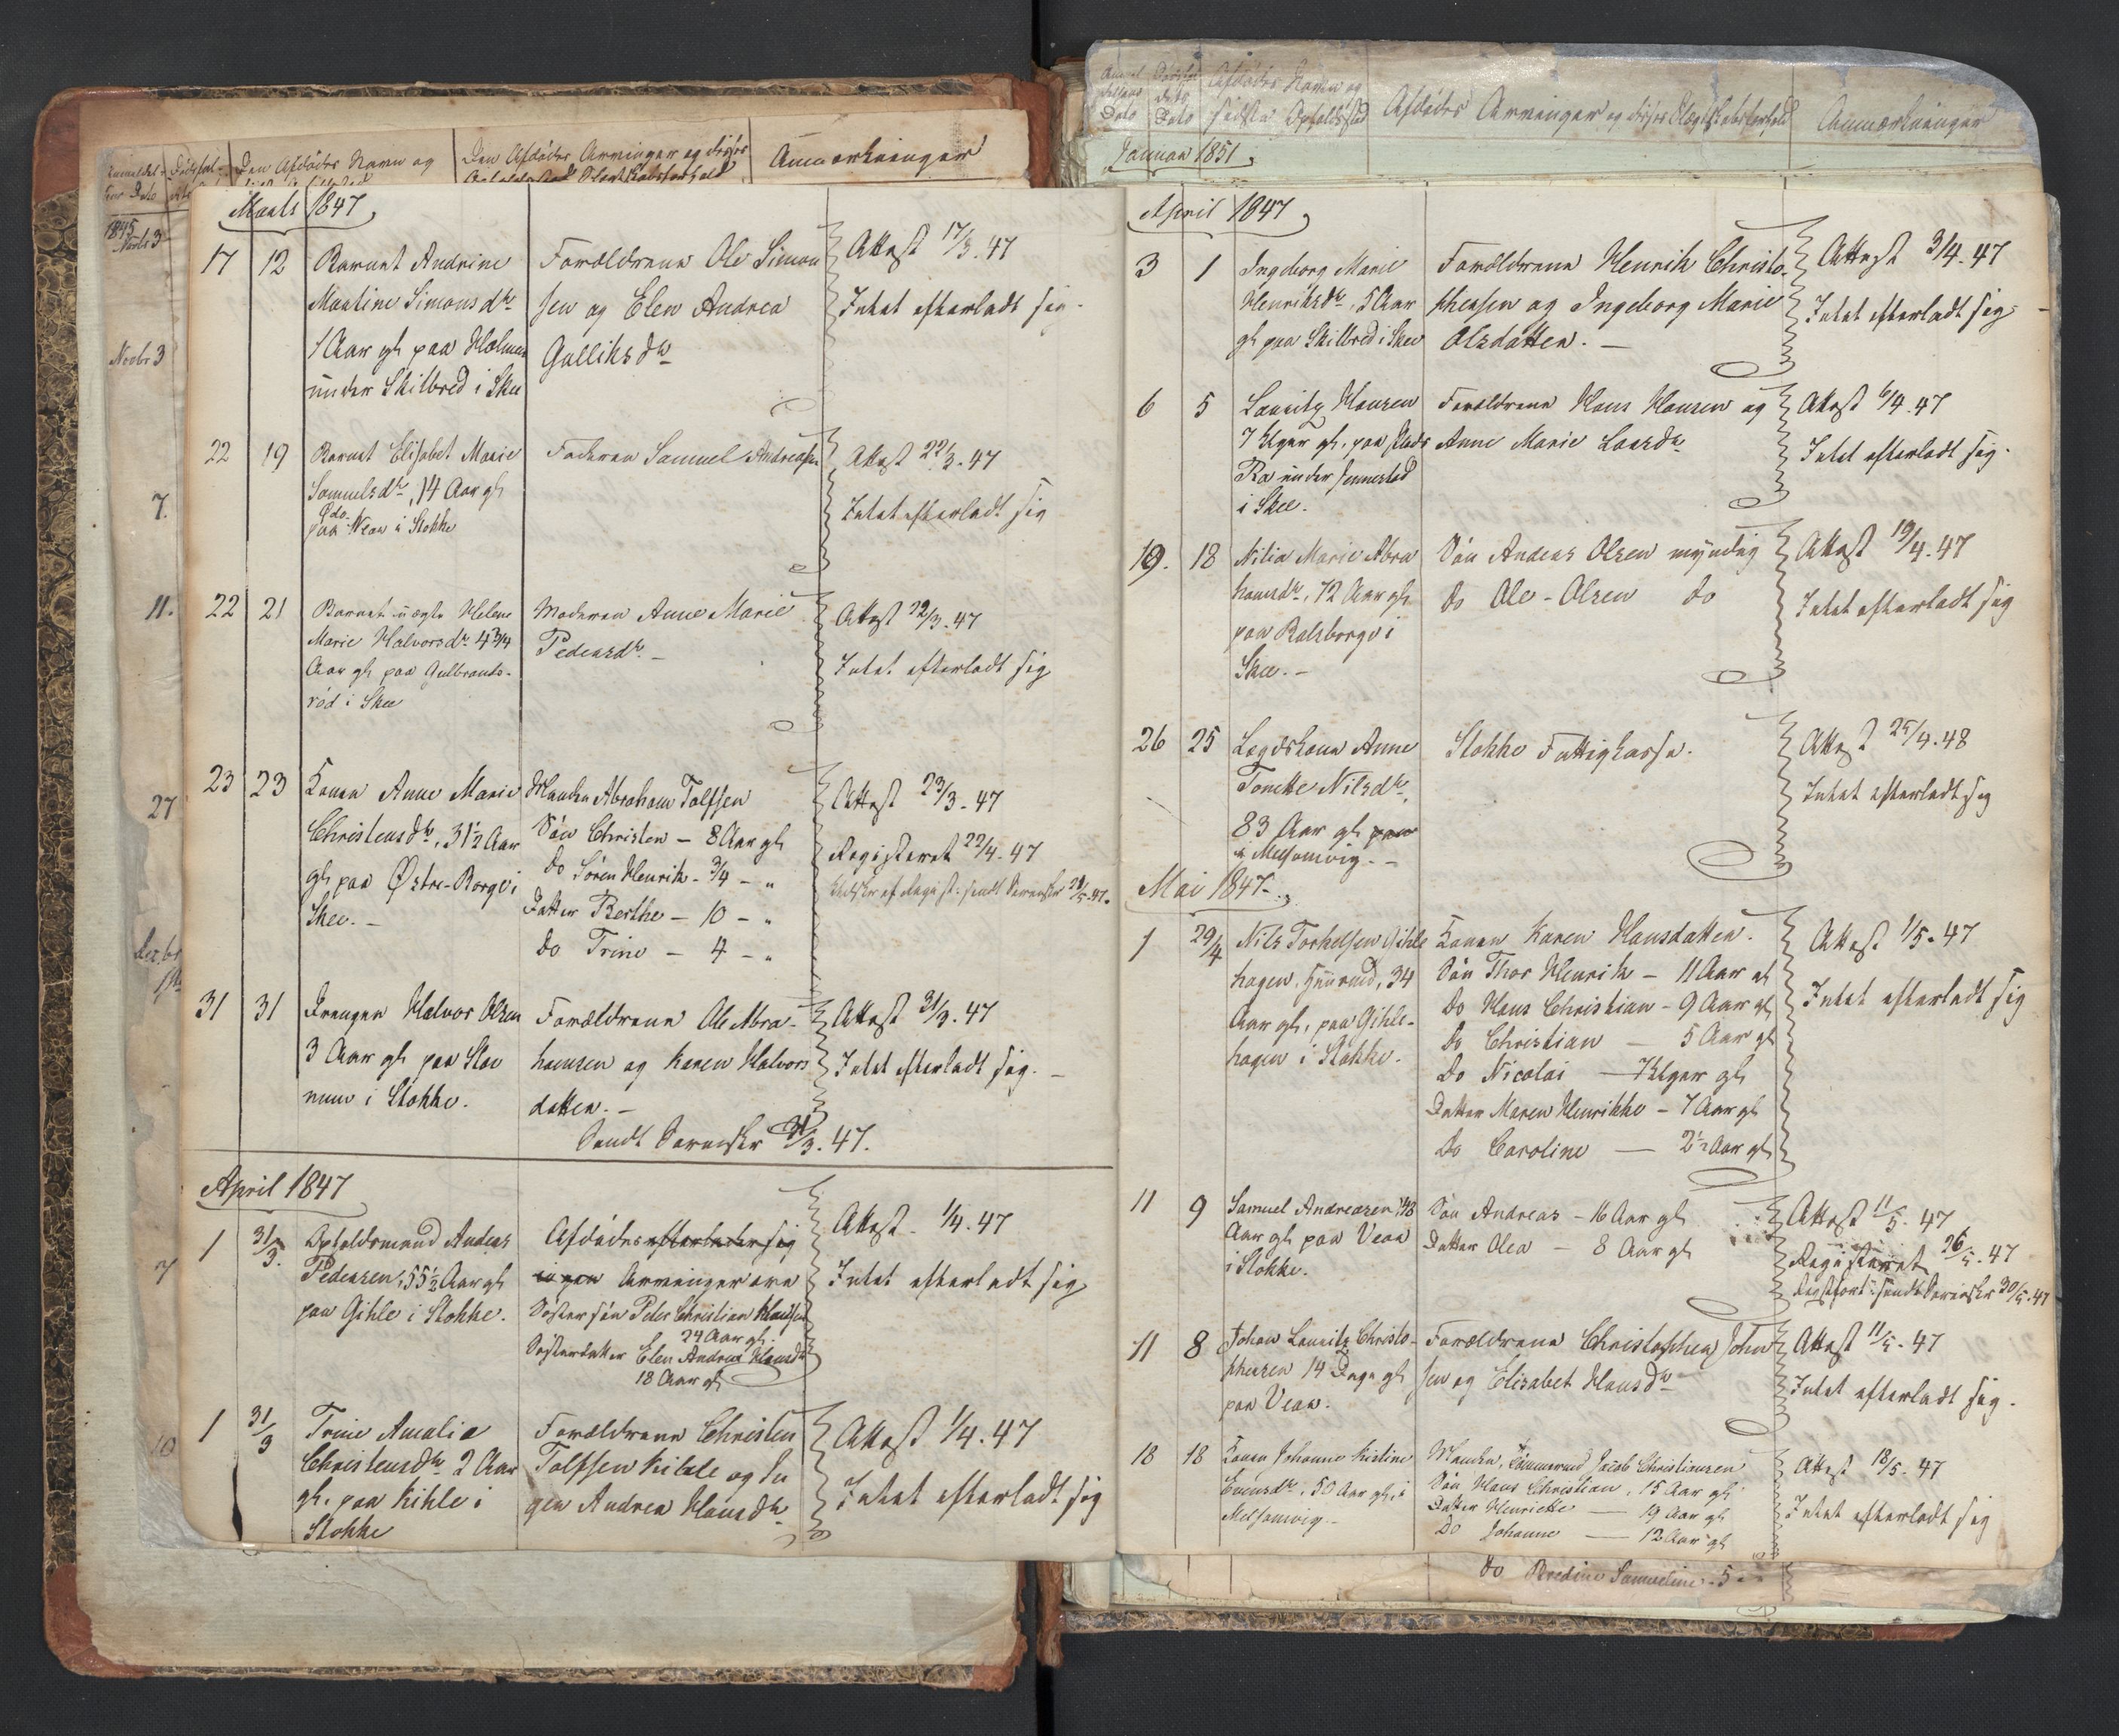 Anmærkninger
Afdødes Navn og
sidste Opholdssted
Afdødes Arvinger og disses Slægtskabsforhold
Anmærkninger
Januar 1851
Den Afdødes Navn og
Den Afdødes Arvinger og disses
1845
Novbr 3
7.
11.
27
Marts 1847
17 12 Barnet Andrine
Martine Simonsdr
1 Aar gl paa Holmen
under Skilbred i Skee
Forældrene Ole Simon
sen og Elen Andrea
Gulliksdr
Attest 17/3. 47
Intet efterladt sig.
22 19 Barnet Elisabet Marie
Samuelsdr, 14 Aar gl
paa Vear i Stokke
Faderen Samuel Andreasen
Attest 22/3. 47
Intet efterladt sig
22 21 Barnet uægte Helene
Marie Halvorsdr 4 3/4
Aar gl paa Gulbrands-
rød i Skee
Moderen Anne Marie
Pedersdr. –
Attest 22/3. 47
Intet efterladt sig
23 23 Konen Anne Marie
Christensdr, 31 1/2 Aar
gl, paa Østre-Borge i
Skee. –
Manden Abraham Tolfsen
Søn Christen – 8 Aar gl
do Søren Henrik – 3/4 – "
Datter Berthe – 10 – "
do Trine – 4 – "
Attest 23/3. 47
Registeret 22/4. 47
Udskr af Regist: sendt Sorenskr 29/5. 47.
31 31 Drengen Halvor Olsen
3 Aar gl paa Sten
num i Stokke.
Forældrene Ole Abra-
hamsen og Karen Halvors
datter. –
Attest 31/3. 47
Intet efterladt sig. –
Sendt Sorenskr 31/3. 47.
April 1847
1 31/3. Opholdsmand Anders
Pedersen, 55 1/2 Aar gl
paa Gihle i Stokke.
Afdødes efterlader sig
Arvinger ere
Søstersøn Peder Christian Hansen
24 Aar gl.
Søsterdatter Elen Andrea Hansdr
18 Aar gl
Attest 1/4. 47
Intet efterladt sig
1 31/3 Trine Amalie
Christensdr 2 Aar
gl. paa Kihle i
Stokke
Forældrene Christen
Tolfsen Kihle og In
ger Andrea Hansdr
Attest 1/4. 47
Intet efterladt sig
April 1847
3 1 Ingeborg Marie
Henriksdr, 5 Aar
gl paa Skilbred i Skee
Forældrene Henrik Christo-
phersen og Ingeborg Marie
Olsdatter. –
Attest 3/4. 47
Intet efterladt sig
6 5 Lauritz Hansen
7 Uger gl, paa Plads
Ra under Jennestad
i Skee.
Forældrene Hans Hansen og
Anne Marie Larsdr
Attest 6/4. 47
Intet efterladt sig.
19. 18 Nilia Marie Abra
hamsdr, 72 Aar gl
paa Ralsborge i
Skee. –
Søn Anders Olsen myndig
do Ole Olsen do
Attest 19/4. 47
Intet efterladt sig
26 25 Lægdskone Anne
Tonette Nilsdr,
83 Aar gl paa
i Melsomvig. –
Stokke Fattigkasse.
Attest 25/4. 48
Intet efterladt sig
Mai 1847.
1 29/4 Nils Torkelsen Gihle
hagen, Huusmd, 34
Aar gl, paa Gihle-
hagen i Stokke.
Konen Karen Hansdatter.
Søn Thor Henrik – 11 Aar gl
do Hans Christian – 9 Aar gl
do Christian – 5 Aar gl
do Nicolai – 7 Uger gl
Datter Maren Henrikke – 7 Aar gl
do Caroline – 2 1/2 Aar gl
Attest 1/5. 47
Intet efterladt sig
11 9 Samuel Andreasen, 48
Aar gl paa Vear
i Stokke.
Søn Andreas – 16 Aar gl
Datter Olea – 8 Aar gl
Attest 11/5. 47
Registeret 26/5. 47
sendt Sorenskr 30/5. 47
11 8 Johan Lauritz Christo-
phersen 14 Dage gl
paa Vear.
Forældrene Christopher John
sen og Elisabet Hansdr
Attest 11/5. 47
Intet efterladt sig.
18 18 Konen Johanne Kirstine
Evensdr, 50 Aar gl, i
Melsomvig –
Manden, Tømmermd Jacob Christiansen
Søn Hans Christian, 15 Aar gl
Datter Henriette – 19 Aar gl
Do Johanne – 12 Aar gl
Attest 18/5. 47
Intet efterladt sig
do Bredine Samueline – 5 –